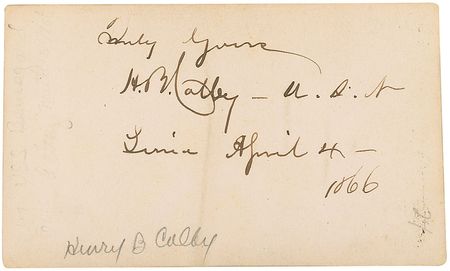 Truly Yours
H. B. Colby — U. S. N
April 4 —
1866
Henry B Colby